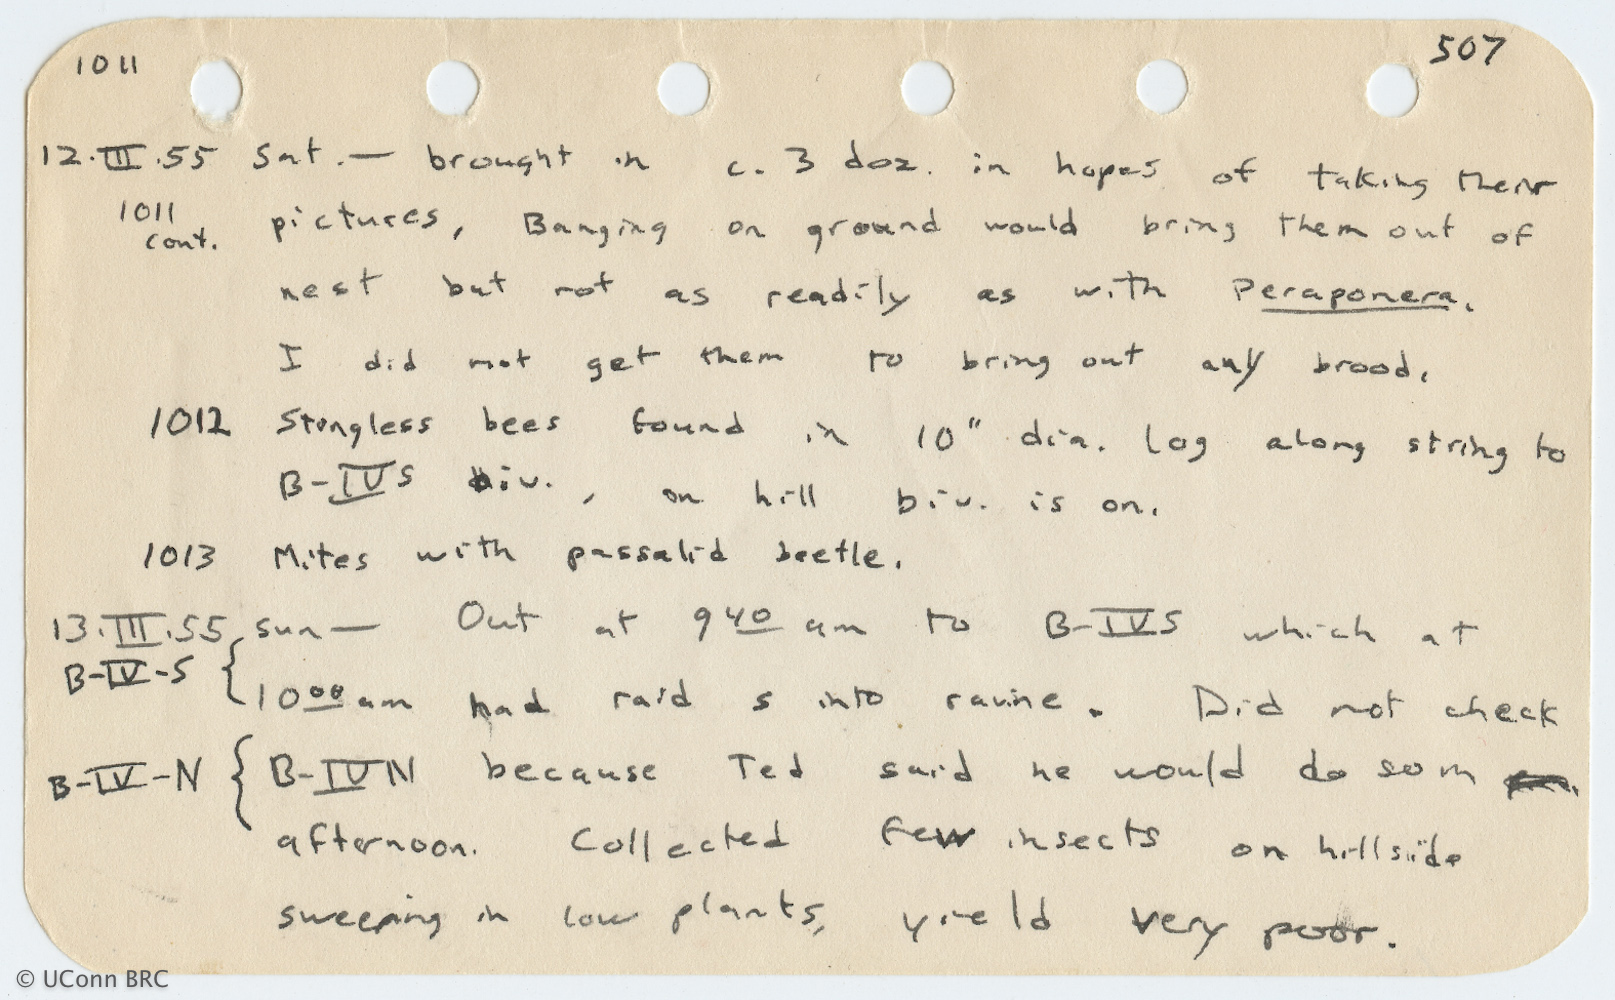 1011
507
12.III.55 Sat.— brought in c. 3 doz. in hopes of taking their
1011 cont. pictures, Banging on ground would bring them out of
nest but not as readily as with Peraponera.
I did not get them to bring out any brood.
1012 Stingless bees found in 10" dia. log along string to
B-IVS biv., on hill biv. is on.
1013 Mites with passalid beetle.
13.III.55 sun— Out at 940 am to B-IVS which at
B-IV-S { 1000 am had raid s into ravine. Did not check
B-IV-N { B-IVN because Ted said he would do so in
afternoon. Collected few insects on hillside
sweeping in low plants, yield very poor.
© UConn BRC